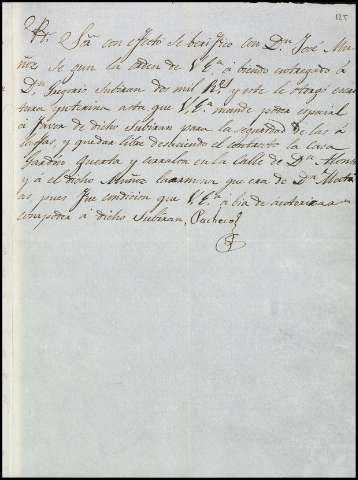 125
Sr. con efecto se berifico con Dn. José Mu
ñoz se gun la orden de V Ea. á biendo entregado á
Dn. Eugenio Subiran dos mil Rs. y este le otorgó escri
tura ynterina asta que V Ea. mande poder espesial
á favor de dicho Subiran para la seguridad de las á
lajas, y quedar libre desaciendo el contrato la casa
Jardin Guerta y corralon en la Calle de Da.
y á el dicho Muñoz la que era de Dn.
as pues fue condicion que V Ea. á bia de autorizar
con poder á dicho Subiran, Pacheco